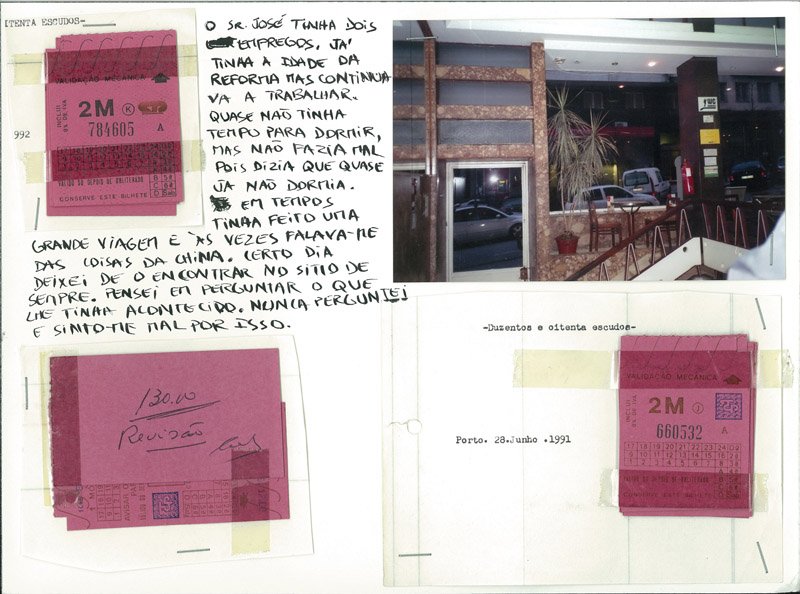 ITENTA ESCUDOS-
992
VALIDAÇÃO MECÂNICA
INCLUI
8% DE IVA
2M K
784605 A
VALIDO SÓ DEPOIS DE OBLITERADO
CONSERVE ESTE BILHETE
O SR. JOSÉ TINHA DOIS
EMPREGOS. JÁ
TINHA A IDADE DA
REFORMA MAS CONTINUA
VA A TRABALHAR.
QUASE NÃO TINHA
TEMPO PARA DORMIR,
MAS NÃO FAZIA MAL
POIS DIZIA QUE QUASE
JÁ NÃO DORMIA.
EM TEMPOS
TINHA FEITO UMA
GRANDE VIAGEM E ÀS VEZES FALAVA-ME
DAS COISAS DA CHINA. CERTO DIA
DEIXEI DE O ENCONTRAR NO SITIO DE
SEMPRE. PENSEI EM PERGUNTAR O QUE
LHE TINHA ACONTECIDO. NUNCA PERGUNTEI
E SINTO-ME MAL POR ISSO.
130.00
Revisão
-Duzentos e oitenta escudos-
Porto. 28.Junho .1991
VALIDAÇÃO MECÂNICA
INCLUI
8% DE IVA
2M J
660532 A
17 18 19 20 21 22 23 24
9 10 11 12 13 14 15 16
1 2 3 4 5 6 7 8
VALIDO SÓ DEPOIS DE OBLITERADO
CONSERVE ESTE BILHETE